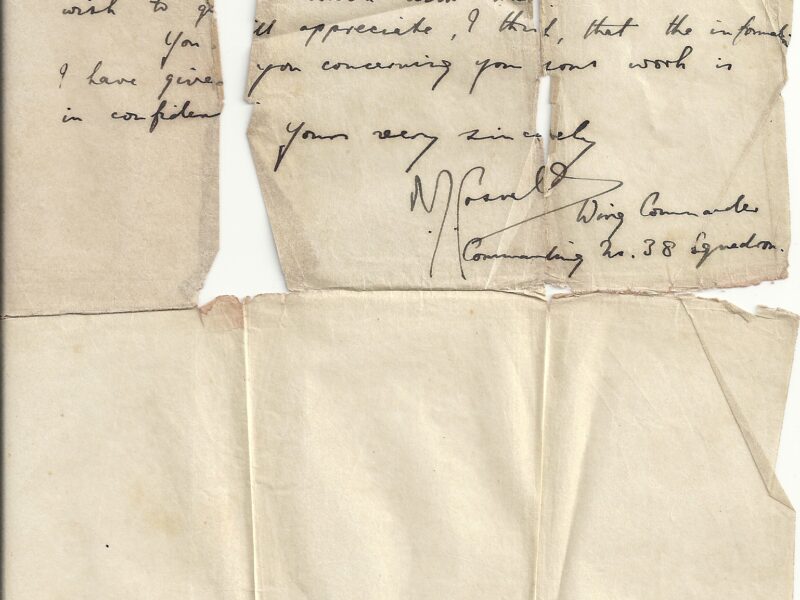 wish to
You ill appreciate, I think, that the informati
I have give you concerning your sons work is
in confiden
Yours very sincerely
Wing Commander
Commanding No. 38 Squadron.